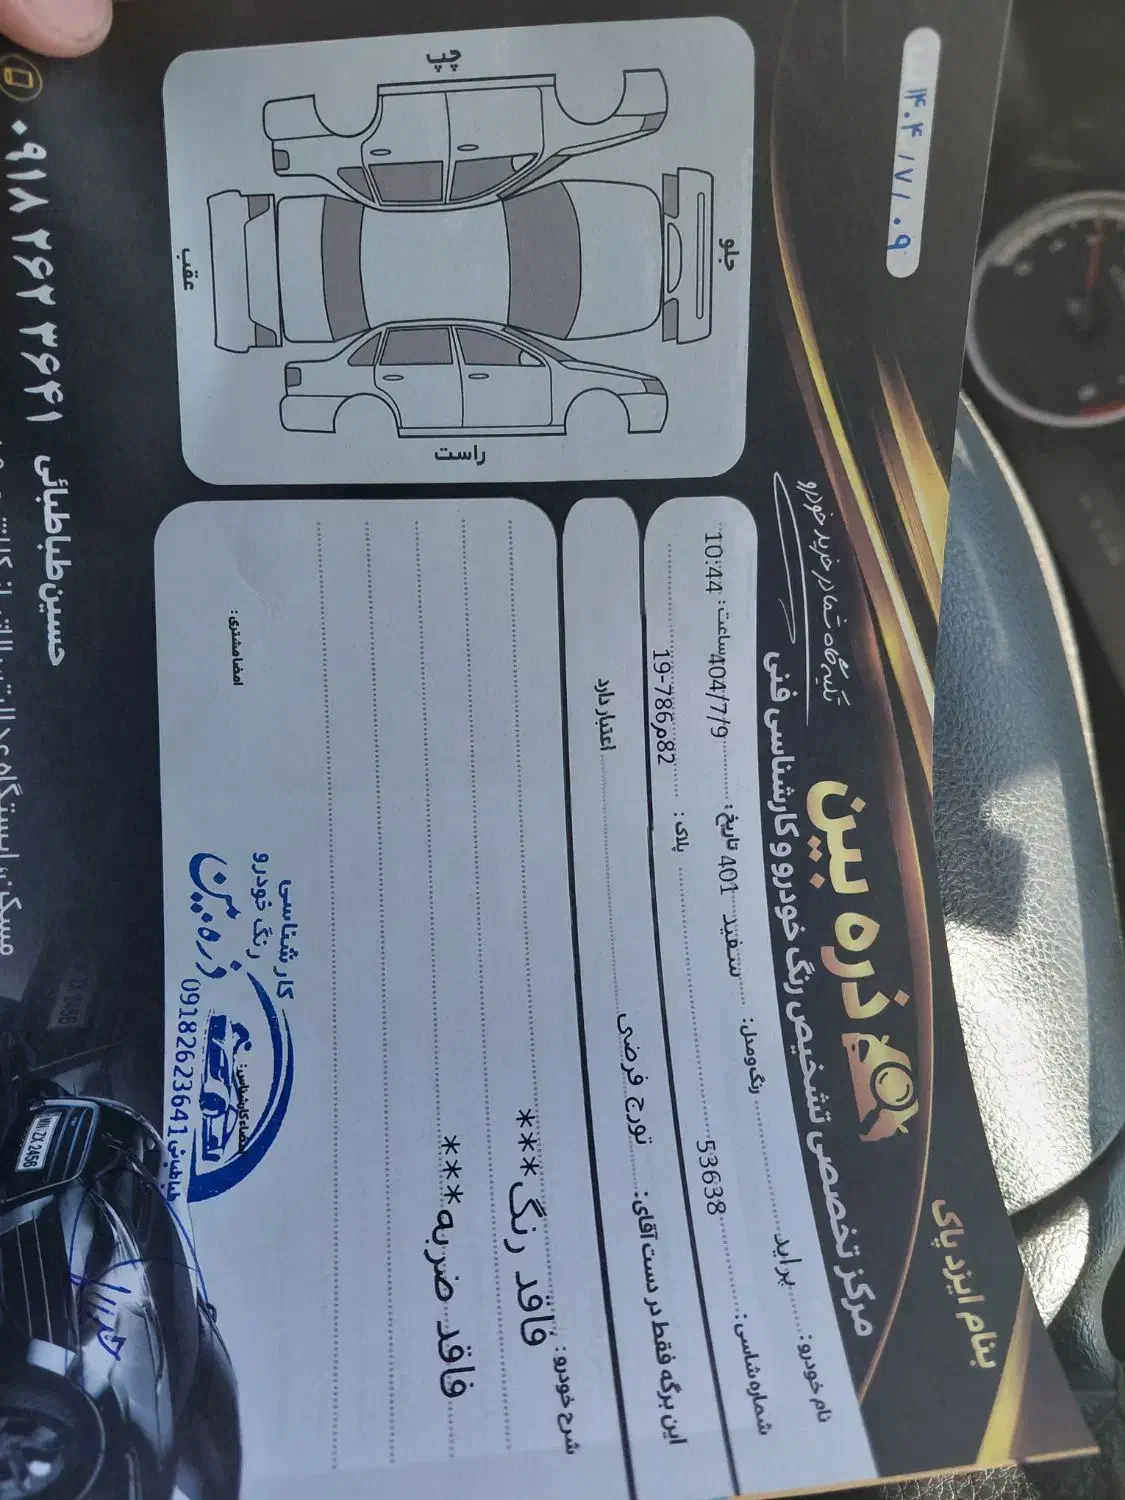 بنام ایزد پاک
۱۴۰۴/۷/۰۹
ذره بین
مرکز تخصصی تشخیص رنگ خودرو و کارشناسی فنی
تکیه گاه شما در خرید خودرو
نام خودرو: پراید رنگ و مدل: سفید 401 تاریخ: 404/7/9 ساعت: 10:44
شماره شاسی: 53638 پلاک: 82م786-19
این برگه فقط در دست آقای: تورج فرضی اعتبار دارد
شرح خودرو:
فاقد رنگ***
فاقد ضربه***
جلو
چپ
راست
عقب
امضا مشتری:
امضاء کارشناس:
کارشناسی
رنگ خودرو
ذره بین
09182623641 طباطبائی
۰۹۱۸ ۲۶۲ ۳۶۴۱ حسین طباطبائی
NN-ZX 2456